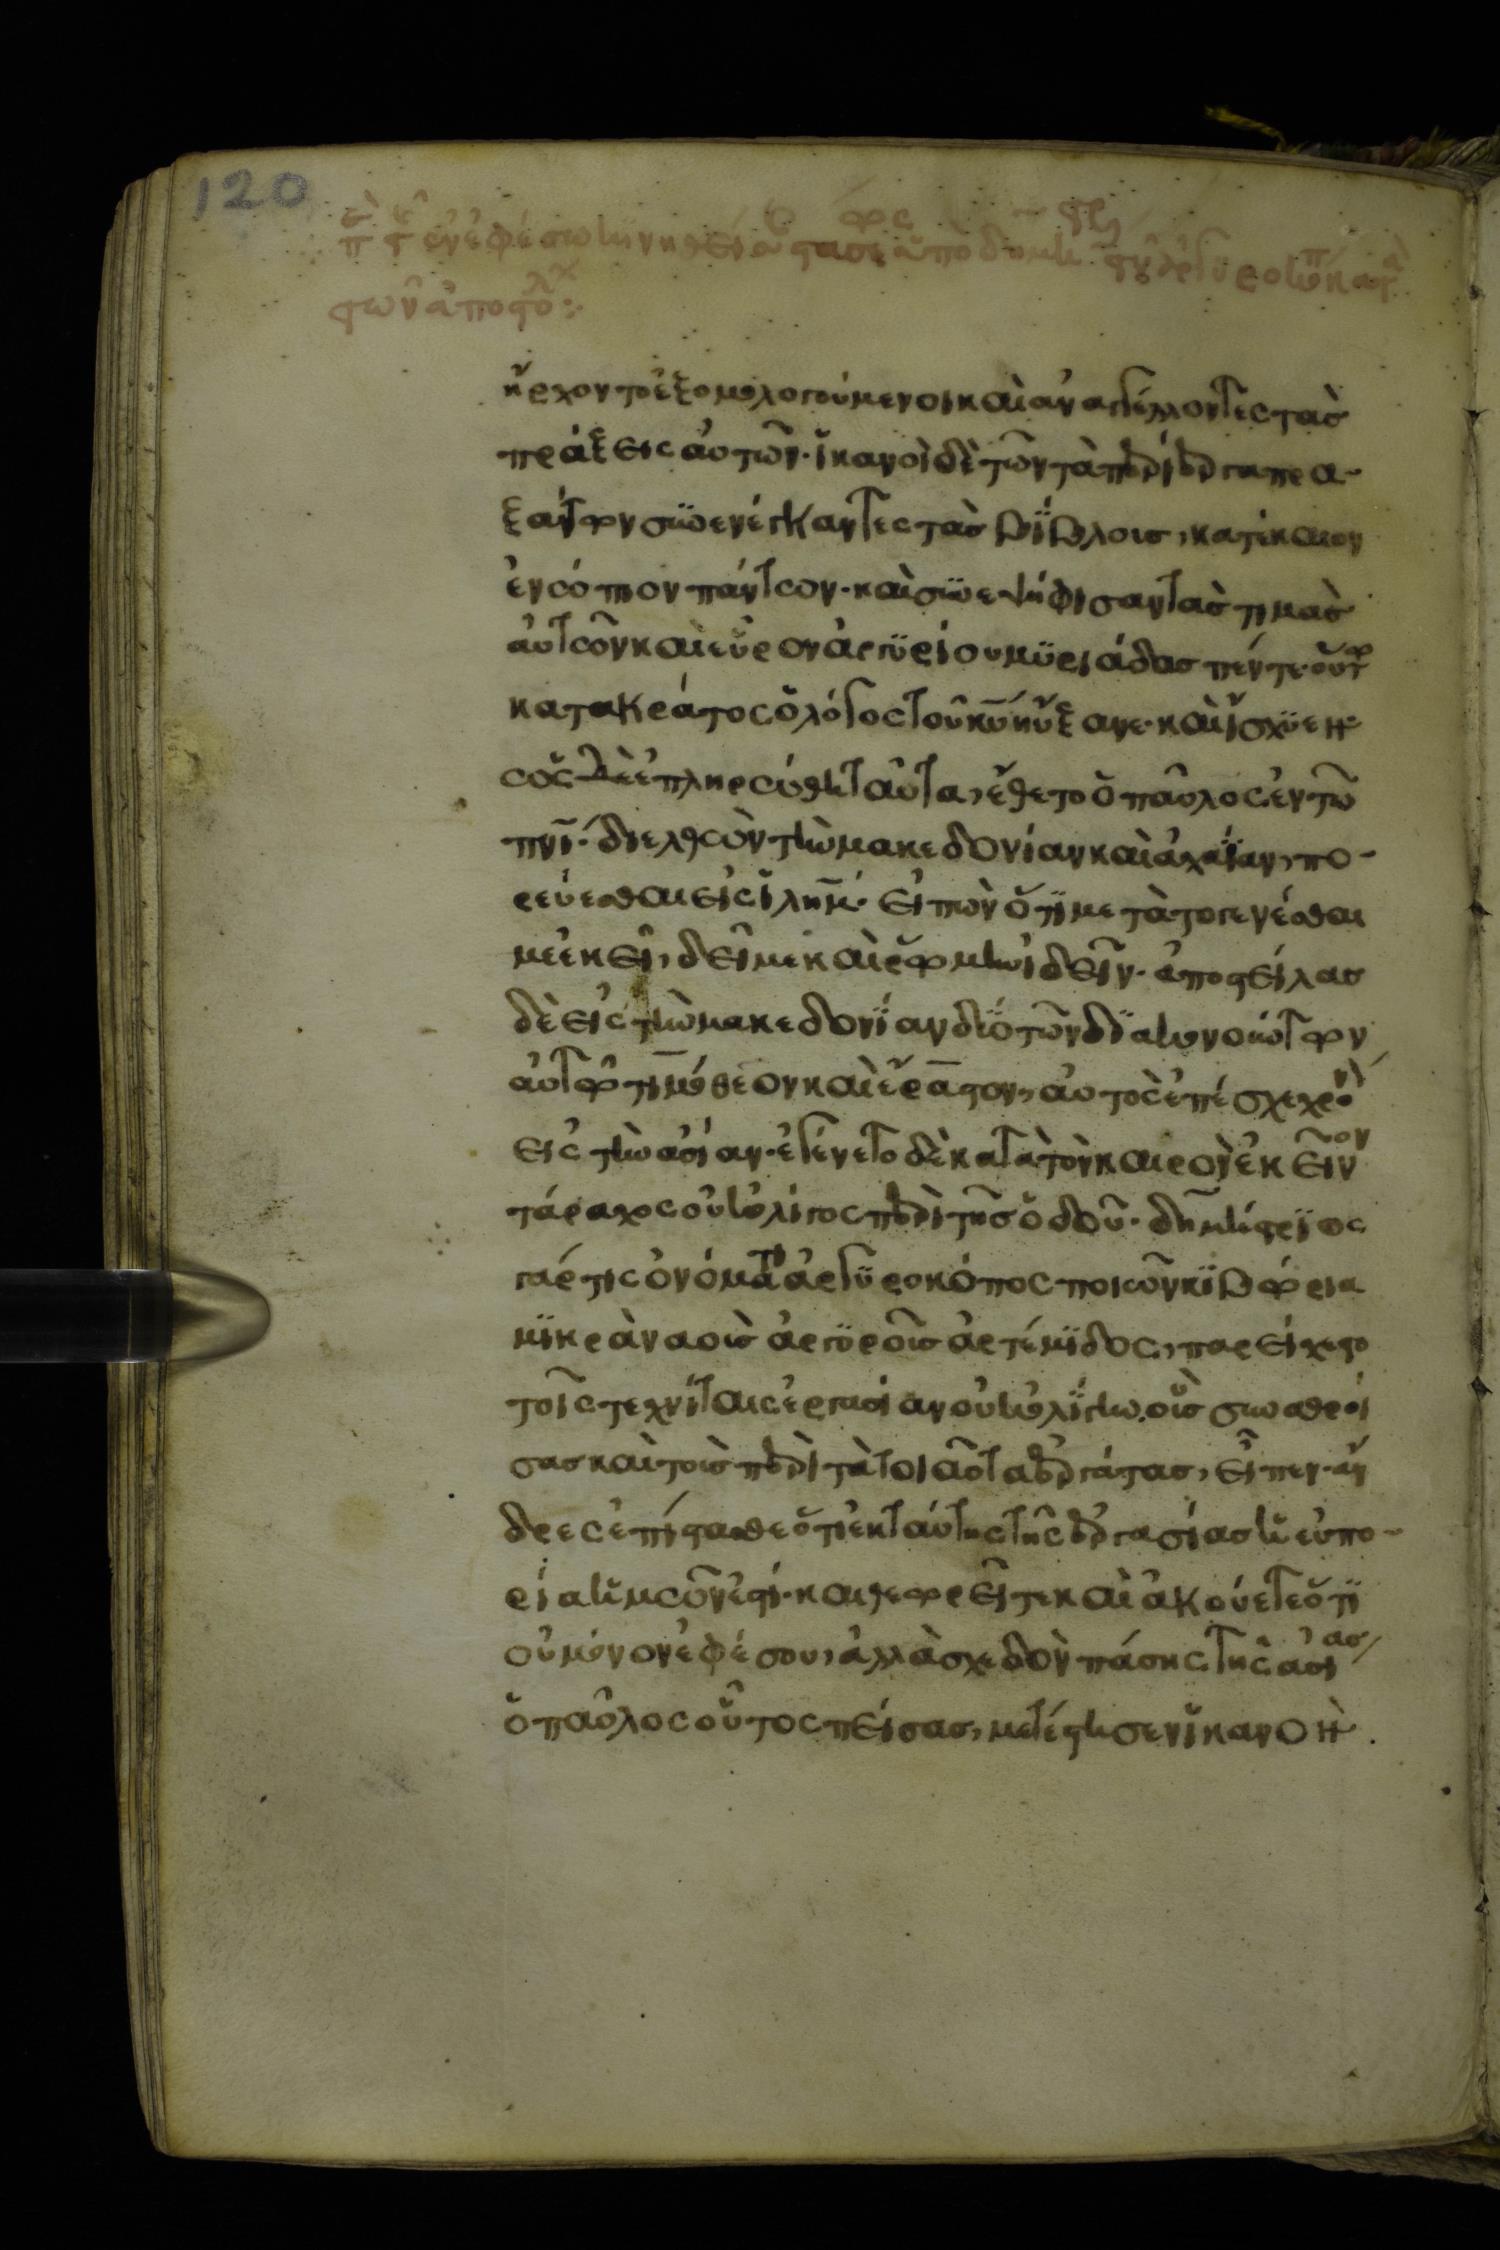 120
π τ ἐν ἐφέσω κινηθεί στάσε ὑπὸ δημη του ἀργυροκοπ κατ
των ἀποστολ :
ἤρχοντο ἐξομολογούμενοι καὶ ἀναγγέλλοντες τὰσ
πράξεις αὐτῶν· ἱκανοὶ δὲ τῶν τὰ περίεργα πρα-
ξάντων συνενέγκαντες τὰσ βίβλους, κατέκαιον
ἐνώπιον πάντων· καὶ συνεψήφισαν τὰσ τιμὰσ
αὐτῶν καὶ εὗρον ἀργυρίου μυριάδασ πέντε· οὕτω
κατα κράτος ὁ λόγος τοῦ κ̅υ̅ ηὔξανε· καὶ ἴσχυεν·
ὡς δὲ ἐπληρώθη ταῦτα, ἔθετο ὁ παῦλος ἐν τῶ
π̅ν̅ι̅· διελθὼν τὴν μακεδονίαν καὶ ἀχαΐαν, πο-
ρεύεσθαι εἰς ἱλη̅μ̅· εἰπὼν ὅτι μετὰ το γενέσθαι
με ἐκεῖ, δεῖ με καὶ ῥώμην ἰδεῖν· ἀποστείλασ
δὲ εἰς τὴν μακεδονίαν δύο τῶν διακονούντων
αὐτῶ τιμόθεον καὶ ἔραστον, αὐτὸς ἐπέσχε χρόνον
εἰς τὴν ἀσίαν· ἐγένετο δὲ κατὰ τὸν καιρὸν ἐκεῖνον
τάραχος οὐκ ὀλίγος περὶ τῆσ ὁδοῦ· δημήτριος
γάρ τις ὀνόματι ἀργυροκόπος ποιῶν κιβώρια
μικρὰ ναοὺσ ἀργυροῦσ ἀρτέμιδος, παρείχετο
τοῖς τεχνίταις ἐργασίαν οὐκ ὀλίγην. οὓσ συναθροί
σασ καὶ τοὺσ περὶ τὰ τοιαῦτα ἐργάτασ, εἶπεν· ἄν
δρες ἐπίστασθε ὅτι ἐκ ταύτης τῆς ἐργασίασ ἡ εὐπο-
ρία ἡμῶν ἐστί· καὶ θεωρεῖτε καὶ ἀκούετε ὅτι
οὐ μόνον ἐφέσου, ἀλλὰ σχεδὸν πάσης τῆς ἀσίασ
ὁ παῦλος οὗτος πείσασ, μετέστησεν ἱκανὸν.